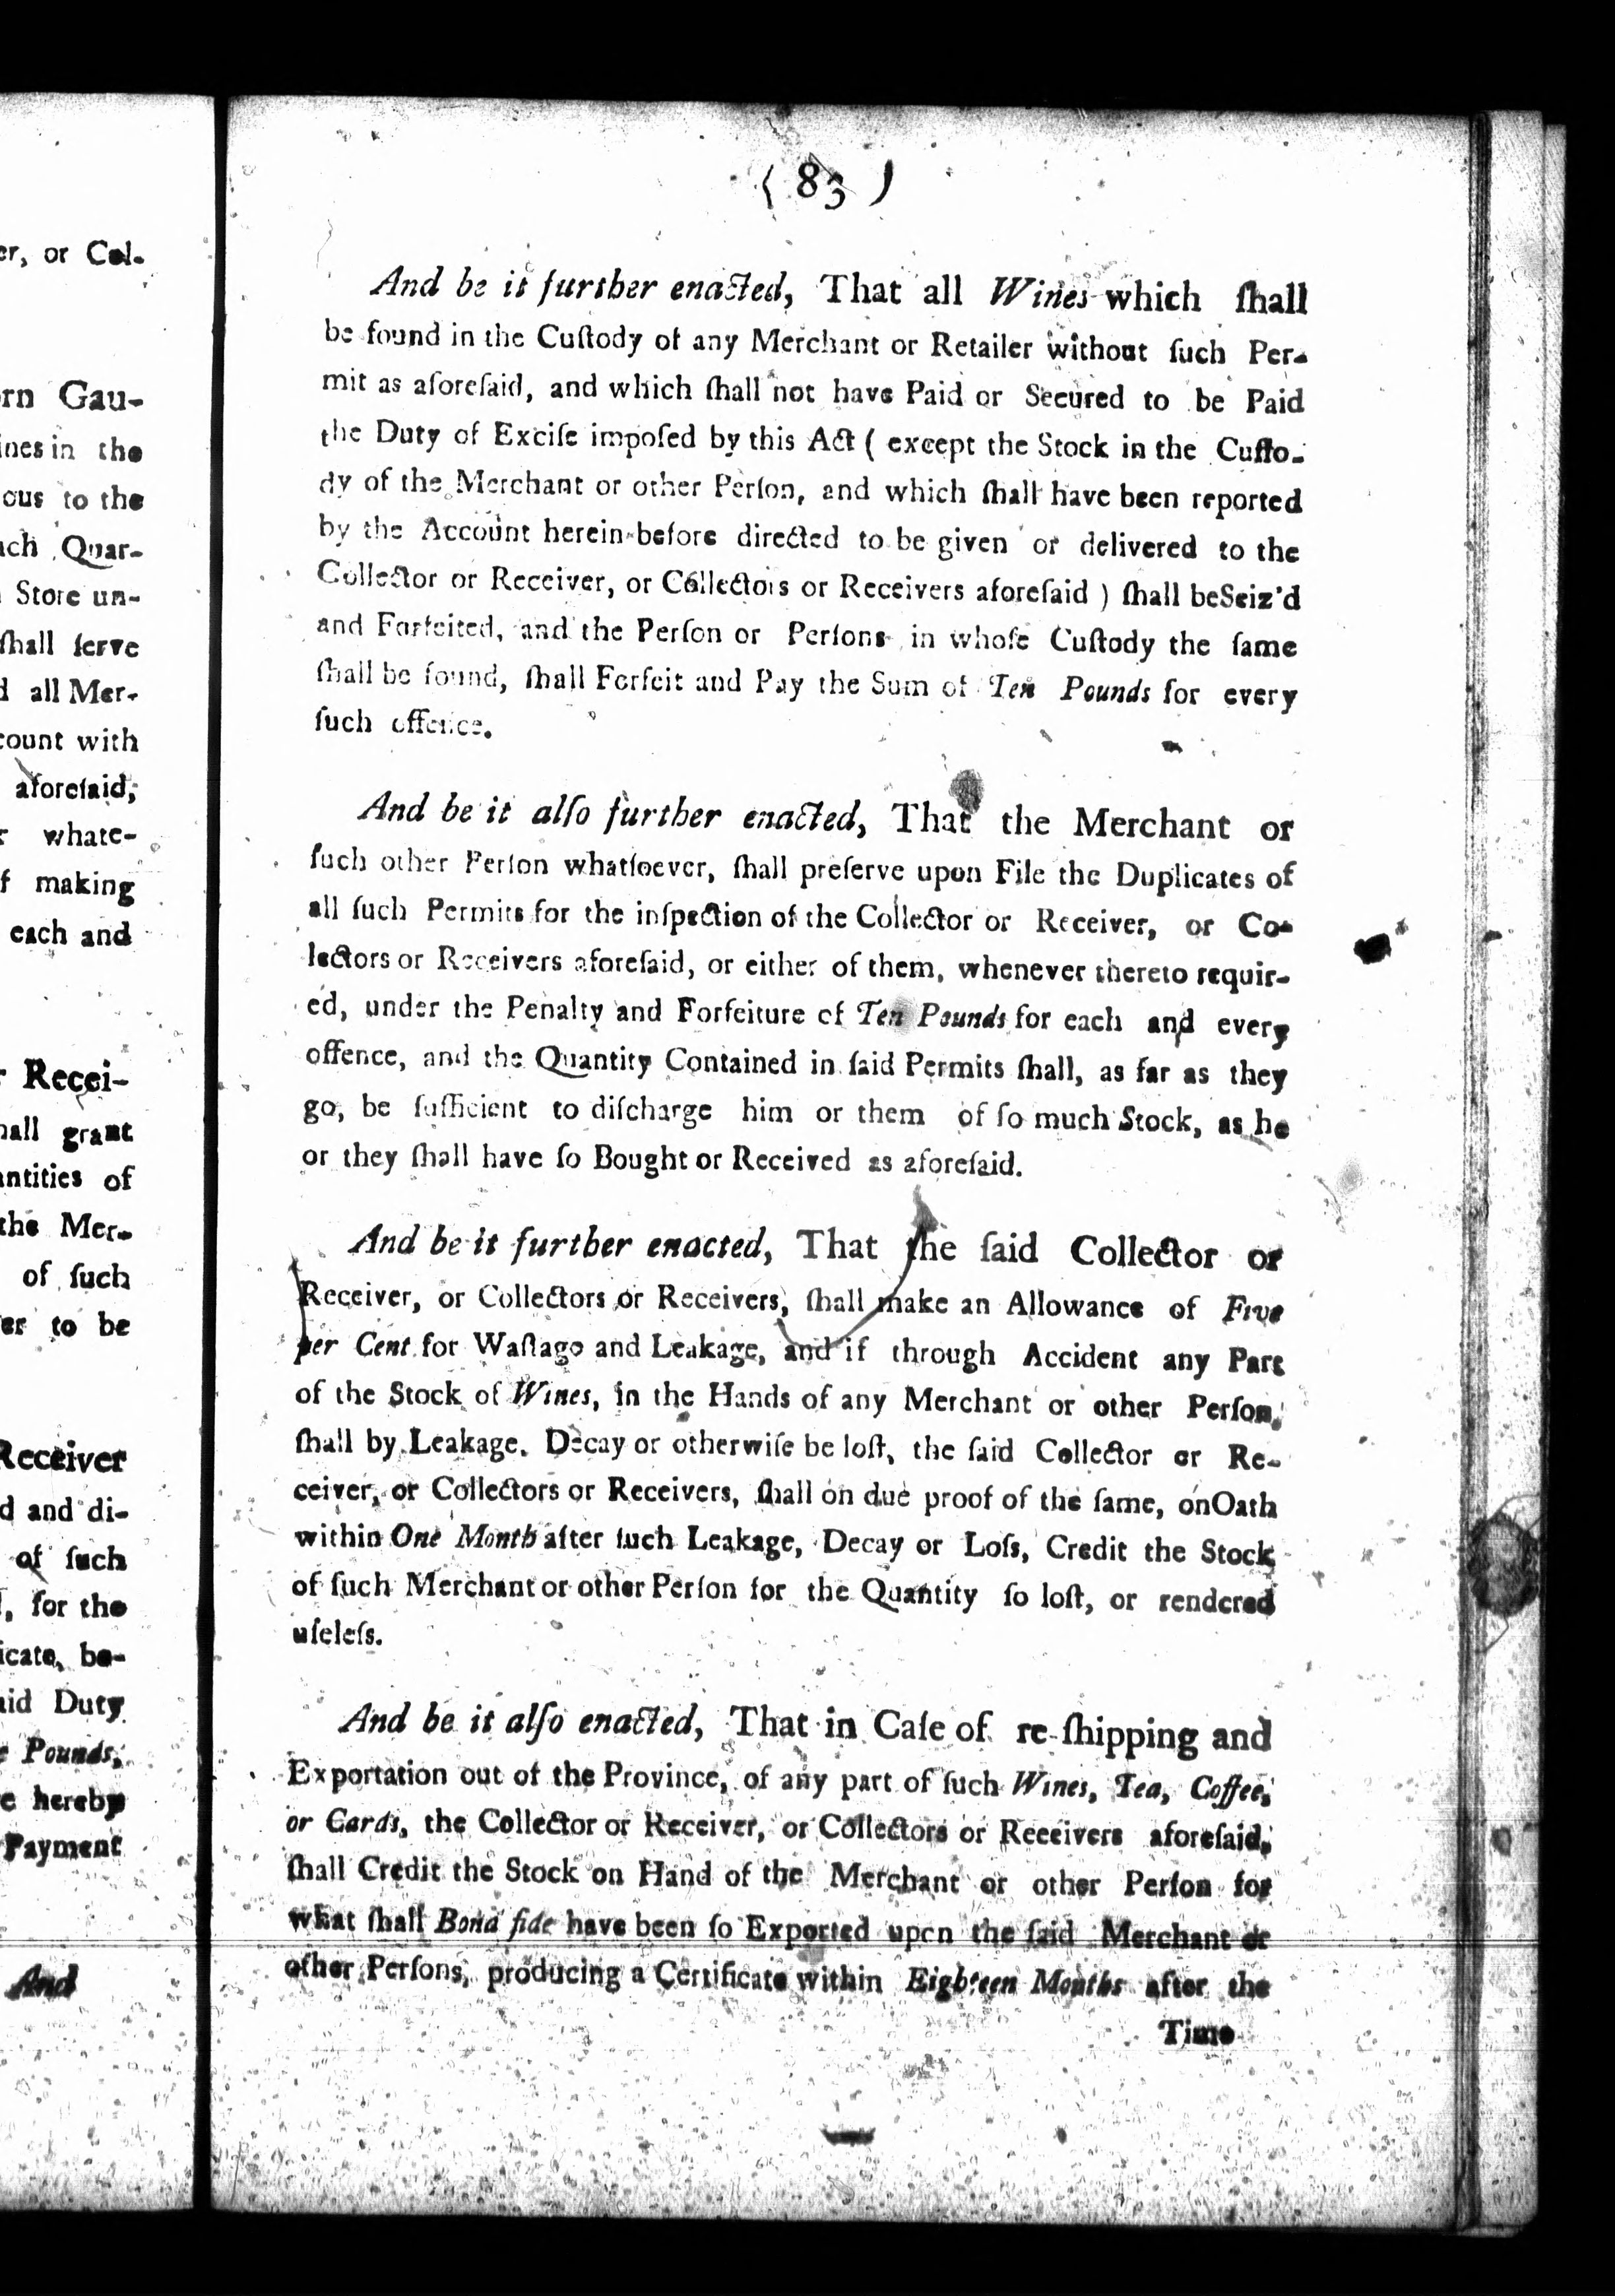 er, or Col-
rn Gau-
ines in the
ous to the
ach Quar-
Store un-
ſhall ſerve
d all Mer-
count with
aforeſaid,
r whate-
f making
each and
r Recei-
hall grant
antities of
the Mer-
of ſuch
er to be
Receiver
d and di-
of ſuch
, for the
icate, be-
aid Duty
e Pounds,
e hereby
Payment
And
( 83 )
And be it further enacted, That all Wines which ſhall
be found in the Cuſtody of any Merchant or Retailer without ſuch Per-
mit as aforeſaid, and which ſhall not have Paid or Secured to be Paid
the Duty of Exciſe impoſed by this Act ( except the Stock in the Cuſto-
dy of the Merchant or other Perſon, and which ſhall have been reported
by the Account herein-before directed to be given or delivered to the
Collector or Receiver, or Collectors or Receivers aforeſaid ) ſhall beSeiz'd
and Forfeited, and the Perſon or Perſons in whoſe Cuſtody the ſame
ſhall be found, ſhall Forfeit and Pay the Sum of Ten Pounds for every
ſuch offence.
And be it alſo further enacted, That the Merchant or
ſuch other Perſon whatſoever, ſhall preſerve upon File the Duplicates of
all ſuch Permits for the inſpection of the Collector or Receiver, or Co-
lectors or Receivers aforeſaid, or either of them, whenever thereto requir-
ed, under the Penalty and Forfeiture of Ten Pounds for each and every
offence, and the Quantity Contained in ſaid Permits ſhall, as far as they
go, be ſufficient to diſcharge him or them of ſo much Stock, as he
or they ſhall have ſo Bought or Received as aforeſaid.
And be it further enacted, That the ſaid Collector or
Receiver, or Collectors or Receivers, ſhall make an Allowance of Five
per Cent for Waſtage and Leakage, and if through Accident any Part
of the Stock of Wines, in the Hands of any Merchant or other Perſon,
ſhall by Leakage, Decay or otherwiſe be loſt, the ſaid Collector or Re-
ceiver, or Collectors or Receivers, ſhall on due proof of the ſame, onOath
within One Month after ſuch Leakage, Decay or Loſs, Credit the Stock
of ſuch Merchant or other Perſon for the Quantity ſo loſt, or rendered
uſeleſs.
And be it alſo enacted, That in Caſe of re-ſhipping and
Exportation out of the Province, of any part of ſuch Wines, Tea, Coffee,
or Cards, the Collector or Receiver, or Collectors or Receivers aforeſaid,
ſhall Credit the Stock on Hand of the Merchant or other Perſon for
what ſhall Bona fide have been ſo Exported upon the ſaid Merchant or
other Perſons, producing a Certificate within Eighteen Months after the
Time